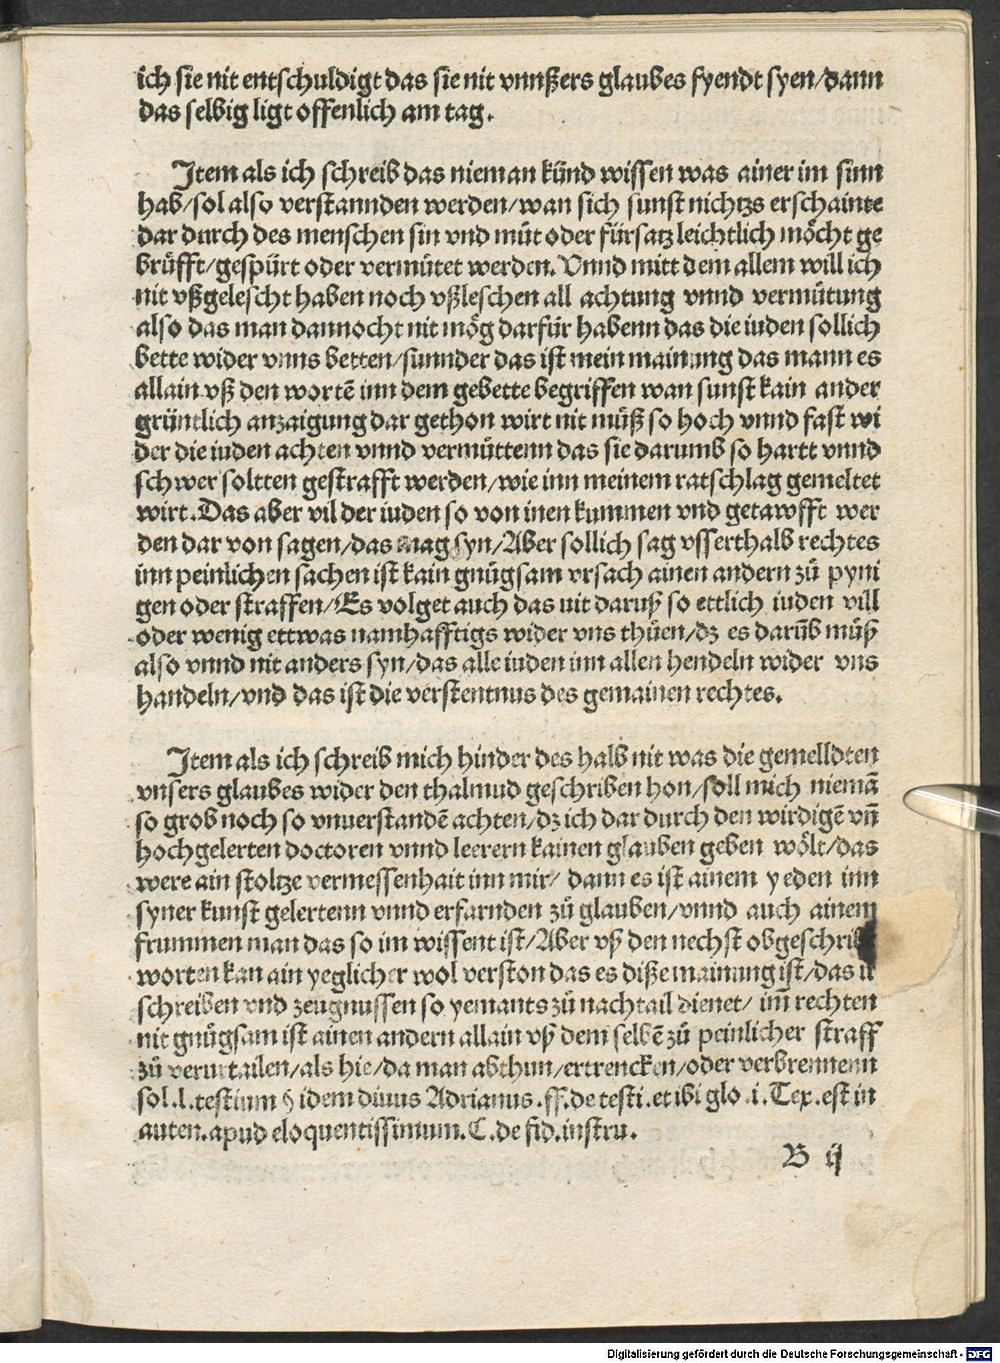 ich sie nit entschuldigt das sie nit vnnßers glaubes fyendt syen/dann
das selbig ligt offenlich am tag.
Item als ich schreib das nieman künd wissen was ainer im sinn
hab/sol also verstannden werden/wan sich sunst nichtzs erschainte
dar durch des menschen sin vnd můt oder fürsatz leichtlich möcht ge
brüfft/gespürt oder vermůtet werden. Vnnd mitt dem allem will ich
nit vßgelescht haben noch vßleschen all achtung vnnd vermůtung
also das man dannocht nit mög darfür habenn das die iuden sollich
bette wider vnns betten/sunnder das ist mein mainung das mann es
allain vß den wortē inn dem gebette begriffen wan sunst kain ander
grüntlich anzaigung dar gethon wirt nit můß so hoch vnnd fast wi
der die iuden achten vnnd vermůttenn das sie darumb so hartt vnnd
schwer soltten gestrafft werden/wie inn meinem ratschlag gemeltet
wirt. Das aber vil der iuden so von inen kummen vnd getawfft wer
den dar von sagen/das mag syn/Aber sollich sag vsserthalb rechtes
inn peinlichen sachen ist kain gnůgsam vrsach ainen andern zů pyni
gen oder straffen/Es volget auch das nit daruß so ettlich iuden vill
oder wenig ettwas namhafftigs wider vns thůen/dz es darūb můß
also vnnd nit anders syn/das alle iuden inn allen hendeln wider vns
handeln/vnd das ist die verstentnus des gemainen rechtes.
Item als ich schreib mich hinder des halb nit was die gemelldten
vnsers glaubes wider den thalmud geschriben hon/soll mich niemā
so grob noch so vnuerstandē achten/dz ich dar durch den wirdigē vn̄
hochgelerten doctoren vnnd leerern kainen glauben geben wölt/das
were ain stoltze vermessenhait inn mir/ dann es ist ainem yeden inn
syner kunst gelertenn vnnd erfarnden zů glauben/vnnd auch ainem
frummen man das so im wissent ist/Aber vß den nechst obgeschri
worten kan ain yeglicher wol verston das es diße mainung ist/das
schreiben vnd zeugnussen so yemants zů nachtail dienet/ im̄ rechten
nit gnůgsam ist ainen andern allain vß dem selbē zů peinlicher straff
zů verurtailen/als hie/da man abthun/ertrencken/oder verbrennenn
sol. l. testium § idem diuus Adrianus. ff. de testi. et ibi glo. i. Tex. est in
auten. apud eloquentissimum. C. de fid. instru.
B ij
Digitalisierung gefördert durch die Deutsche Forschungsgemeinschaft - DFG